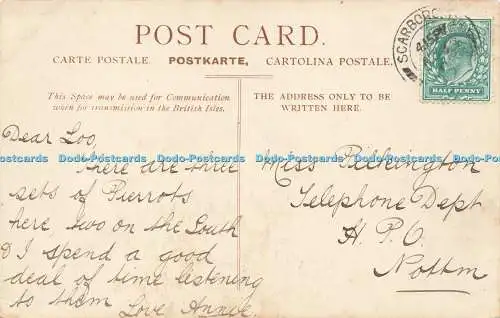 POST CARD.
CARTE POSTALE. POSTKARTE, CARTOLINA POSTALE.
This Space may be used for Communication
when for transmission in the British Isles.
THE ADDRESS ONLY TO BE
WRITTEN HERE.
SCARBORO
HALF PENNY
Dear Loo,
There are three
sets of Pierrots
here two on the South
& I spend a good
deal of time listening
to them Love Annie.
Miss Pilkington
Telephone Dept
H. P. O.
Nottm
Dodo-Postcards Dodo-Postcards Dodo-Postcards Dodo-Postcards